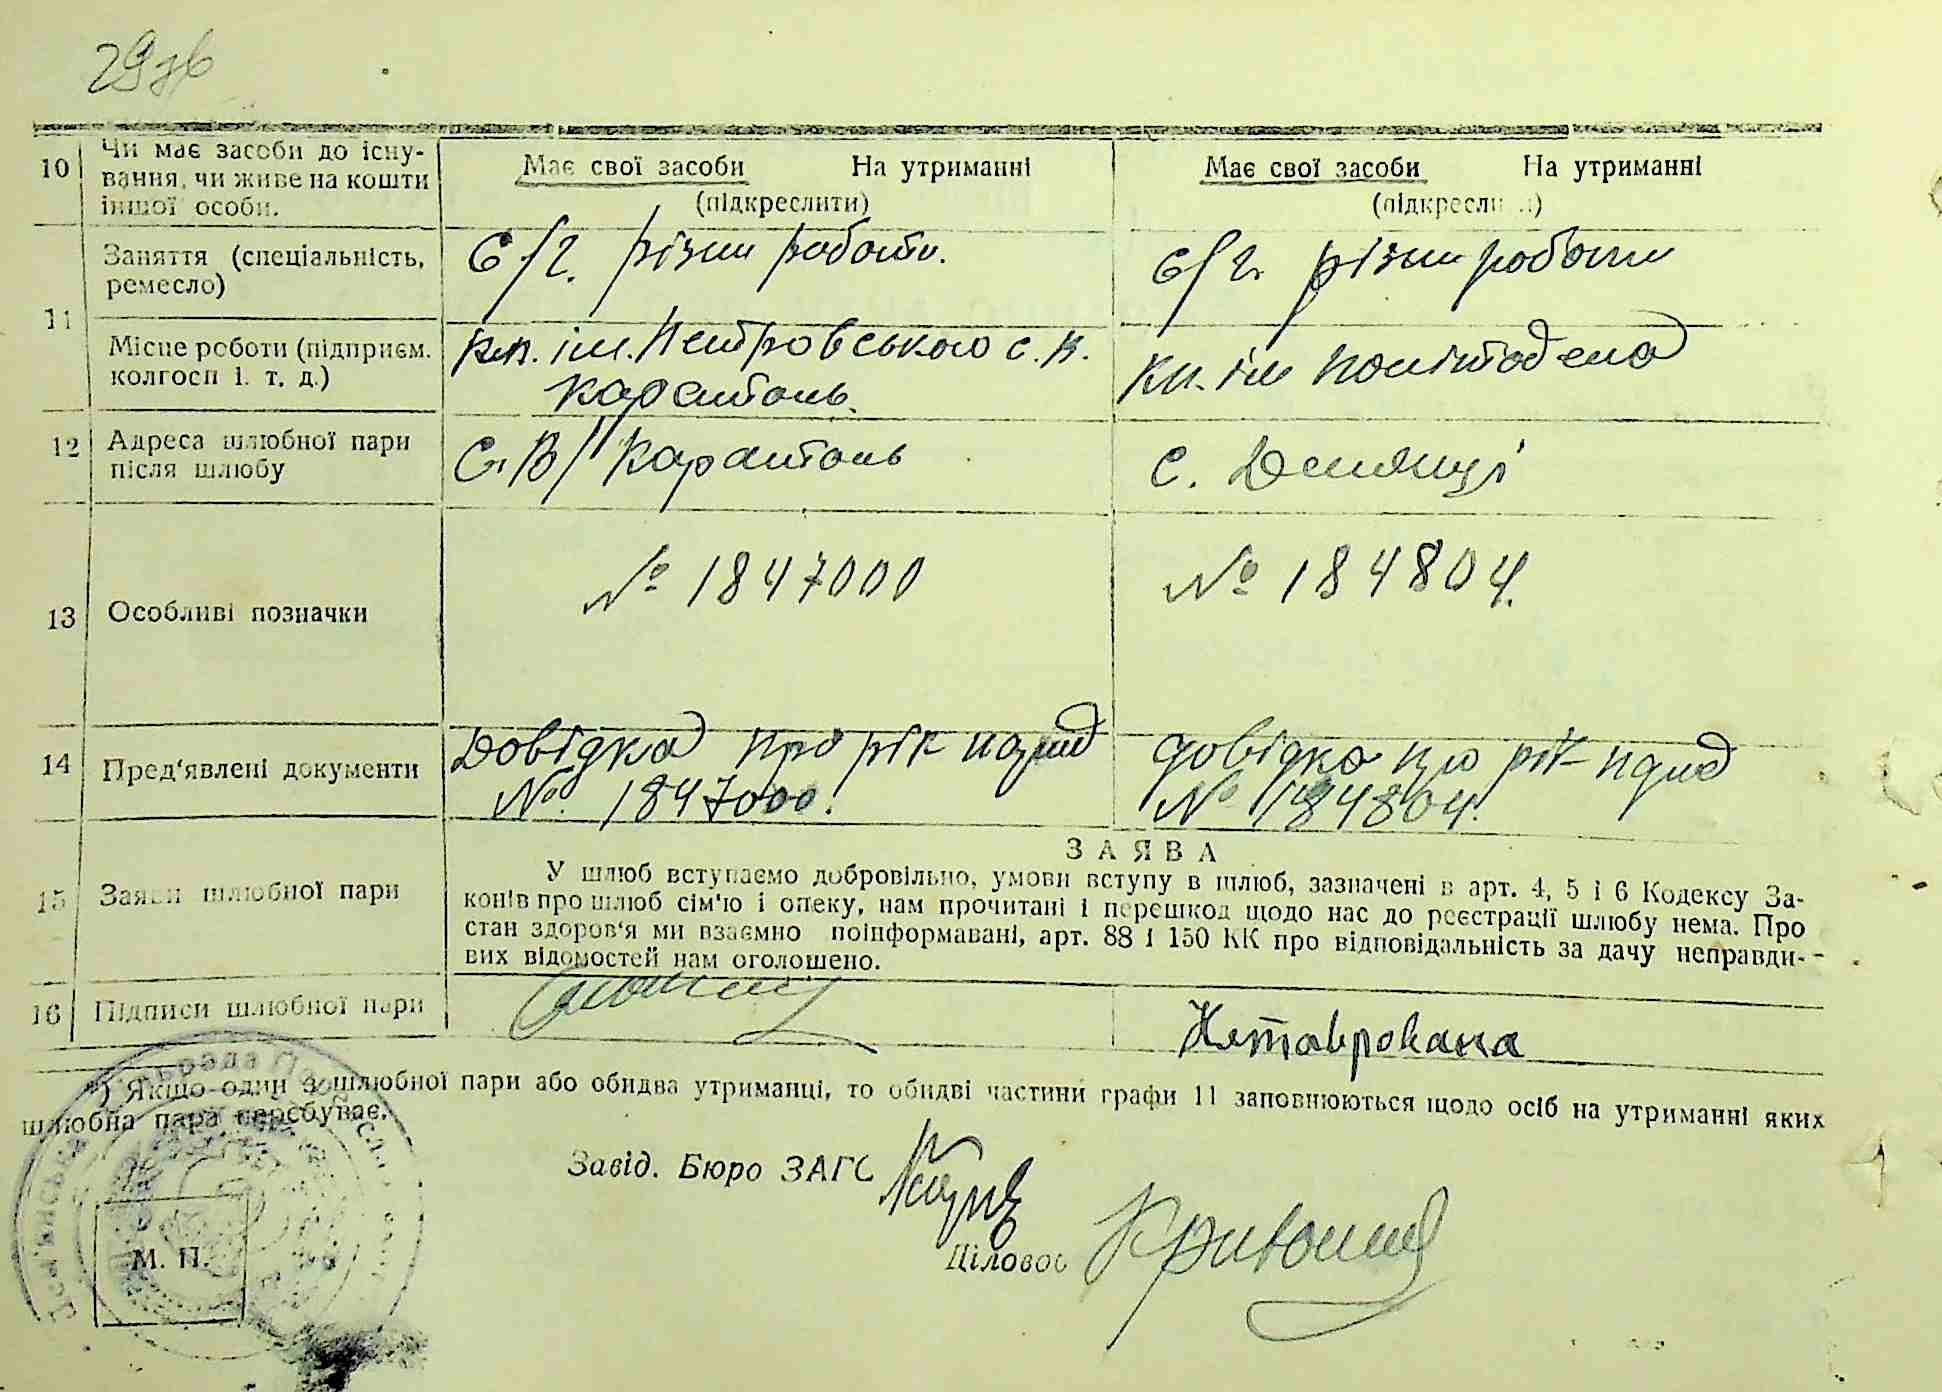 29зв
10 Чи має засоби до існу-
вання, чи живе на кошти
іншої особи.
Має свої засоби На утриманні
(підкреслити)
Має свої засоби На утриманні
(підкреслити)
11
Заняття (спеціальність,
ремесло)
С/г. різни роботи.
С/г. різни роботи
Місце роботи (підприєм.
колгосп і. т. д.)
кл. ім. Петровського с. В.
Карантонь.
Кл. ім Політодела
12 Адреса шлюбної пари
після шлюбу
С. В/Карантонь
с. Демянці
13 Особливі позначки
№ 1847000
№ 184804.
14 Пред'явлені документи
Довідка про рік народ
№ 1847000.
довідка про рік народ
№ 184804.
15 Заяви шлюбної пари
ЗАЯВА
У шлюб вступаємо добровільно, умови вступу в шлюб, зазначені в арт. 4, 5 і 6 Кодексу За-
конів про шлюб сім'ю і опеку, нам прочитані і перешкод щодо нас до реєстрації шлюбу нема. Про
стан здоров'я ми взаємно поінформавані, арт. 88 і 150 КК про відповідальність за дачу неправди-
вих відомостей нам оголошено.
16 Підписи шлюбної пари
*) Якщо один з шлюбної пари або обидва утриманці, то обидві частини графи 11 заповнюються щодо осіб на утриманні яких
шлюбна пара перебуває.
Завід. Бюро ЗАГС
М. П.
Діловод